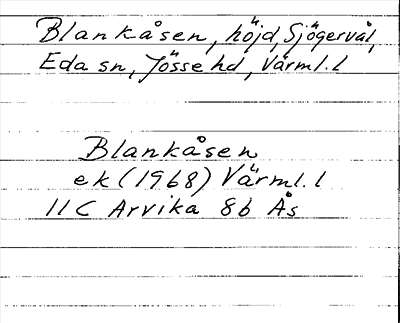 Blankåsen, höjd, Sjögervål,
Eda sn, Jösse hd, Värml. l
Blankåsen
ek (1968) Värml. l
11C Arvika 8b Ås